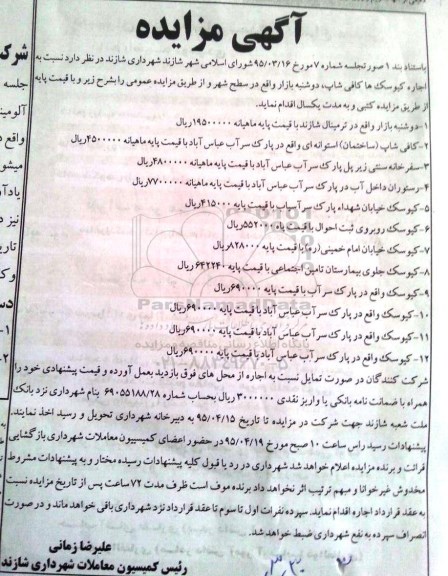 آگهی مزایده
باستناد بند ۱ صورتجلسه شماره ۷ مورخ ۹۵/۰۳/۱۶ شورای اسلامی شهر شازند شهرداری شازند در نظر دارد نسبت به
اجاره کیوسک ها، کافی شاپ، دوشنبه بازار واقع در سطح شهر و از طریق مزایده عمومی را بشرح زیر و با قیمت پایه
از طریق مزایده کتبی و به مدت یکسال اقدام نماید.
۱-دوشنبه بازار واقع در ترمینال شازند با قیمت پایه ماهیانه ۱۹۵۰۰۰۰۰ریال
۲-کافی شاپ (ساختمان) استوانه ای واقع در پارک سرآب عباس آباد با قیمت پایه ماهیانه ۴۵۰۰۰۰۰ریال
۳-سفره خانه سنتی زیر پل پارک سرآب عباس آباد با قیمت پایه ماهیانه ۴۸۰۰۰۰۰ریال
۴-رستوران داخل آب در پارک سرآب عباس آباد با قیمت پایه ماهیانه ۷۷۰۰۰۰۰ریال
۵-کیوسک خیابان شهداء پارک سرآسیاب با قیمت پایه ۴۱۵۰۰۰ریال
۶-کیوسک روبروی ثبت احوال با قیمت پایه ۵۵۲۰۰۰ریال
۷-کیوسک خیابان امام خمینی(ره) با قیمت پایه ۸۲۸۰۰۰ریال
۸-کیوسک جلوی بیمارستان تامین اجتماعی با قیمت پایه ۶۴۲۲۴۰ریال
۹-کیوسک واقع در پارک سرآب عباس آباد با قیمت پایه ۶۹۰۰۰۰ریال
۱۰-کیوسک واقع در پارک سرآب عباس آباد با قیمت پایه ۶۹۰۰۰۰ریال
۱۱-کیوسک واقع در پارک سرآب عباس آباد با قیمت پایه ۶۹۰۰۰۰ریال
۱۲-کیوسک واقع در پارک سرآب عباس آباد با قیمت پایه ۶۹۰۰۰۰ریال
شرکت کنندگان در صورت تمایل نسبت به اجاره از محل های فوق بازدید بعمل آورده و قیمت پیشنهادی خود را
همراه با ضمانت نامه بانکی یا واریز نقدی ۳۰۰۰۰۰۰ ریال بحساب شماره ۶۹۰۵۵۱۸۸/۲۸ بنام شهرداری نزد بانک
ملت شعبه شازند جهت شرکت در مزایده تا تاریخ ۹۵/۰۴/۱۵ به دبیرخانه شهرداری تحویل و رسید اخذ نمایند.
پیشنهادات رسیده راس ساعت ۱۰ صبح مورخ ۹۵/۰۴/۱۹ در حضور اعضای کمیسیون معاملات شهرداری بازگشایی
قرائت و برنده مزایده اعلام خواهد شد. شهرداری در رد یا قبول کلیه پیشنهادات رسیده مختار و به پیشنهادات مشروط
مخدوش غیرخوانا و مبهم ترتیب اثر نخواهد داد برنده موظف است ظرف مدت ۷۲ ساعت پس از تاریخ مزایده نسبت
به عقد قرارداد اجاره اقدام نماید. سپرده نفرات اول تا سوم تا عقد قرارداد نزد شهرداری باقی خواهد ماند و در صورت
انصراف سپرده به نفع شهرداری ضبط خواهد شد.
علیرضا زمانی
رئیس کمیسیون معاملات شهرداری شازند